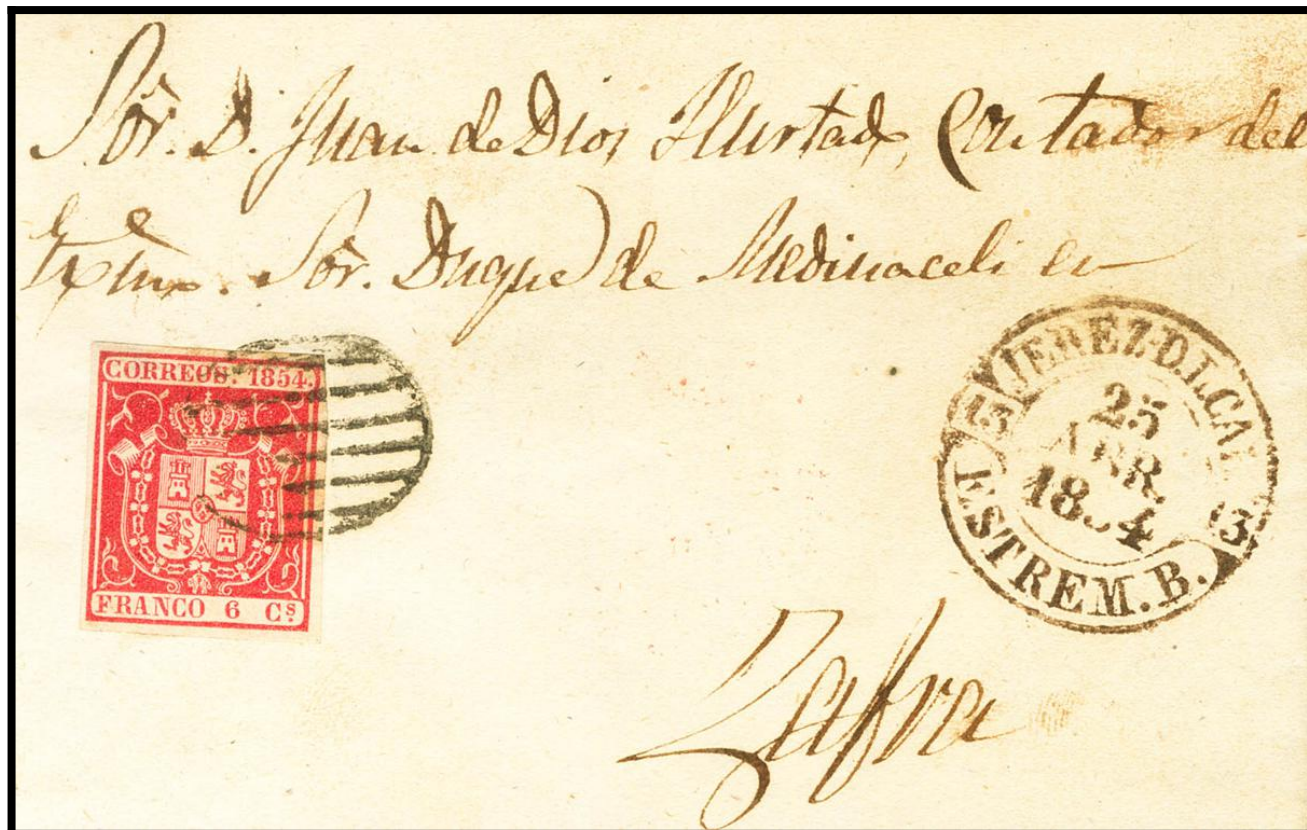 Sor. D. Juan de Dios Hurtado, Contador del
Exmo. Sor. Duque de Medinaceli en
CORREOS. 1854.
FRANCO 6 Cs.
JEREZ-D.L.CAB
25
ABR.
1854
ESTREM.B.
Zafra